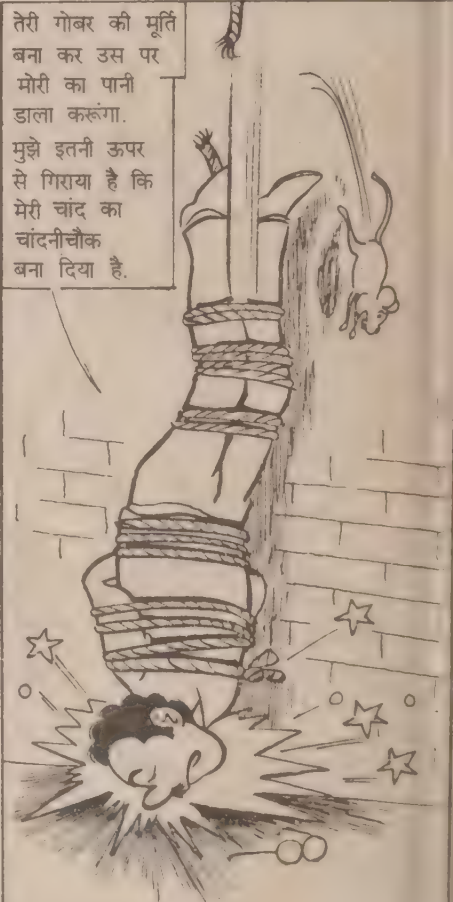 तेरी गोबर की मूर्ति
बना कर उस पर
मोरी का पानी
डाला करूंगा.
मुझे इतनी ऊपर
से गिराया है कि
मेरी चांद का
चांदनीचौक
बना दिया है.